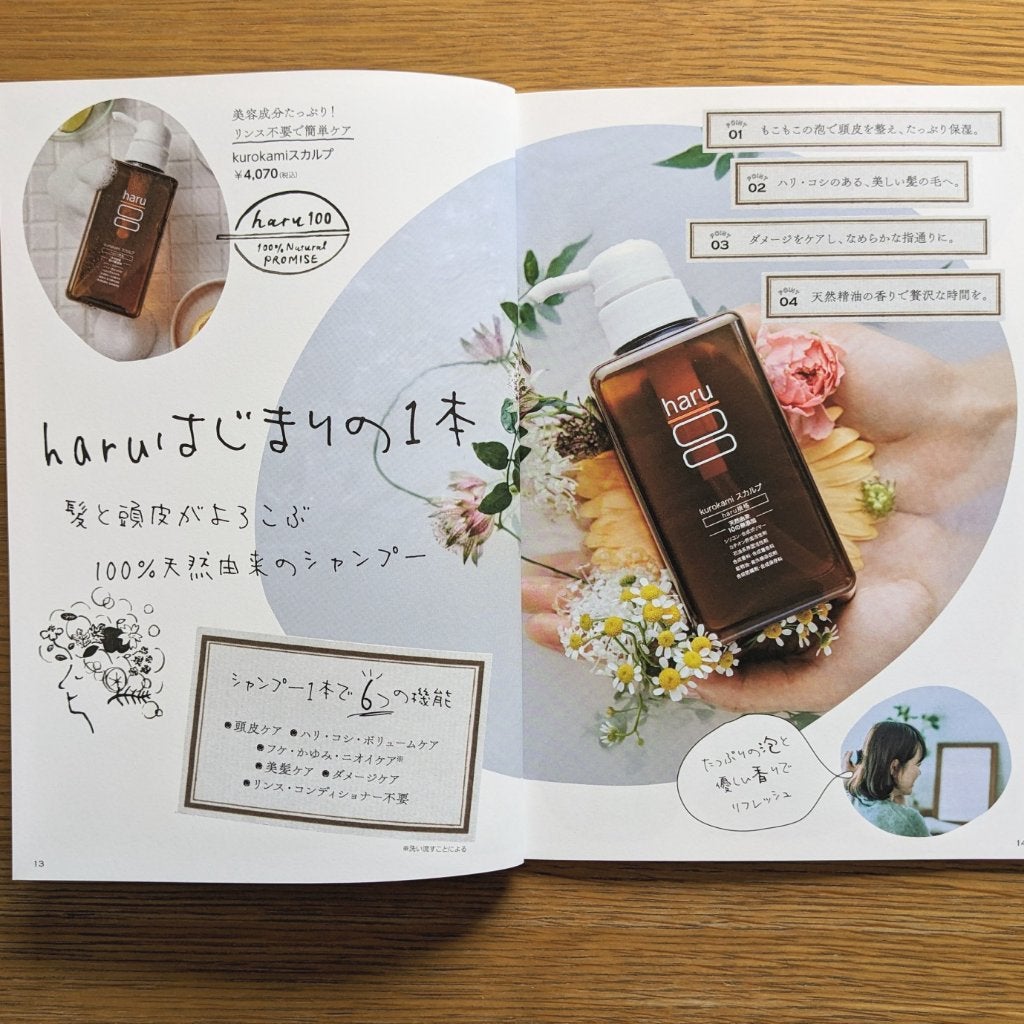 美容成分たっぷり!
リンス不要で簡単ケア
kurokamiスカルプ
¥4,070(税込)
haru100
100% Natural
PROMISE
haru
haruはじまりの1本
髪と頭皮がよろこぶ
100%天然由来のシャンプー
シャンプー1本で6つの機能
●頭皮ケア ●ハリ・コシ・ボリュームケア
●フケ・かゆみ・ニオイケア※
●美髪ケア ●ダメージケア
●リンス・コンディショナー不要
※洗い流すことによる
13
POINT 01 もこもこの泡で頭皮を整え、たっぷり保湿。
POINT 02 ハリ・コシのある、美しい髪の毛へ。
POINT 03 ダメージをケアし、なめらかな指通りに。
POINT 04 天然精油の香りで贅沢な時間を。
haru
kurokami スカルプ
haru規格
天然由来
10の無添加
シリコン・合成ポリマー
カチオン界面活性剤
石油系界面活性剤
合成香料・合成着色料
鉱物油・紫外線吸収剤
合成防腐剤・合成保存料
たっぷりの泡と
優しい香りで
リフレッシュ
14